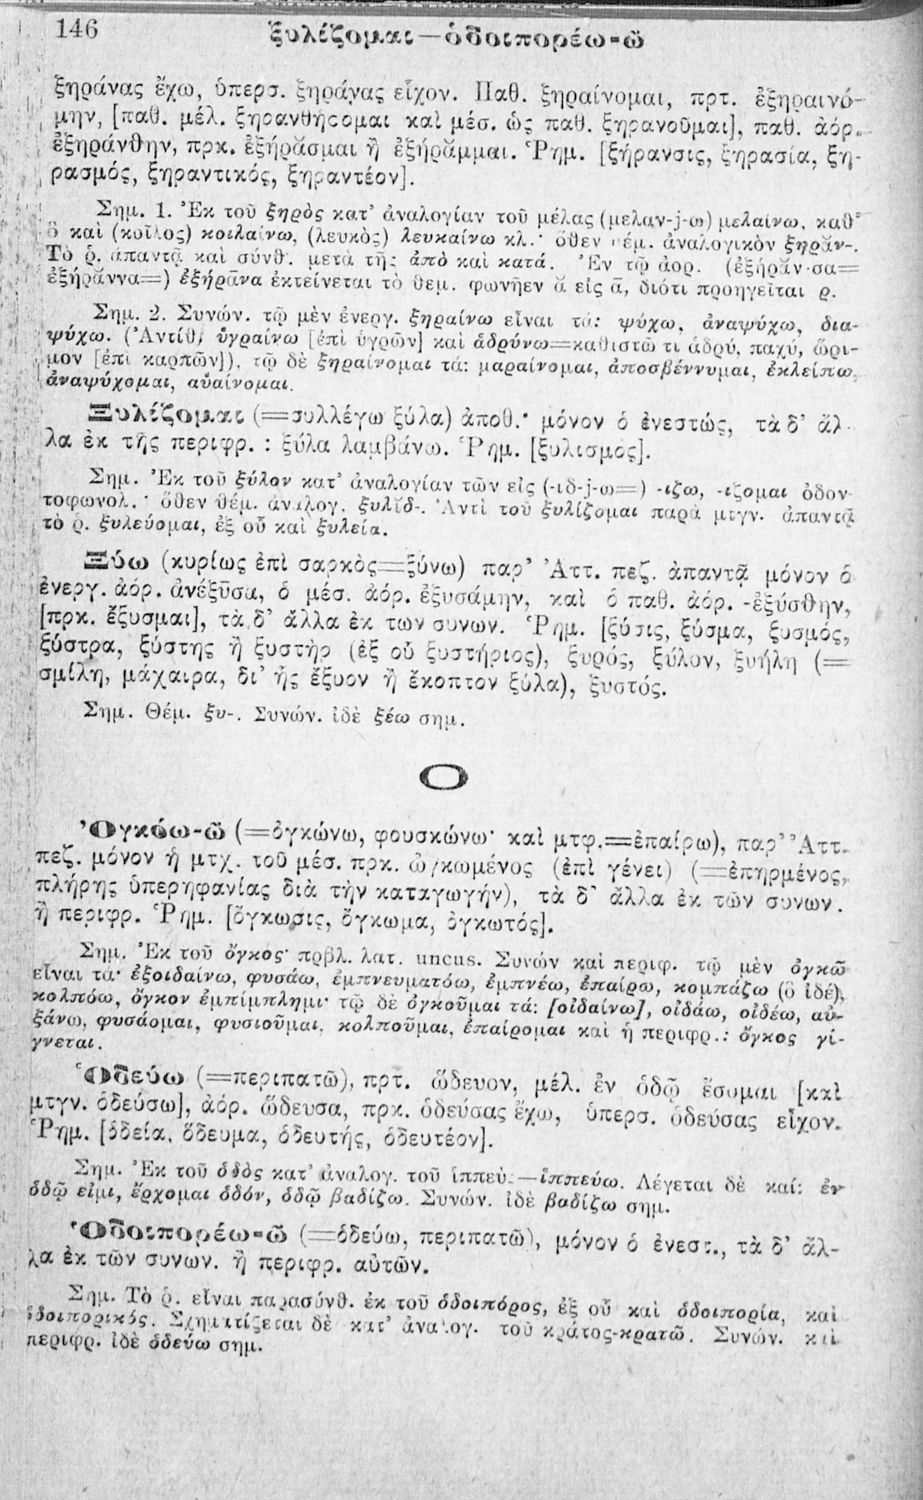 146
ξυλίζομαι—ὁδοιπορέω-ῶ
ξηράνας ἔχω, ὑπερσ. ξηράνας εἶχον. Παθ. ξηραίνομαι, πρτ. ἐξηραινό-
μην, [παθ. μέλ. ξηρανθήσομαι καὶ μέσ. ὡς παθ. ξηρανοῦμαι], παθ. ἀόρ.
ἐξηράνθην, πρκ. ἐξήρᾰσμαι ἢ ἐξήραμμαι. Ῥημ. [ξήρανσις, ξηρασία, ξη-
ρασμός, ξηραντικός, ξηραντέον].
Σημ. 1. Ἐκ τοῦ ξηρὸς κατ' ἀναλογίαν τοῦ μέλας (μελαν-j-ω) μελαίνω, καθ'
ὃ καὶ (κοῖλος) κοιλαίνω, (λευκὸς) λευκαίνω κλ.· ὅθεν θέμ. ἀναλογικὸν ξηρᾰν-.
Τὸ ῥ. ἀπαντᾷ καὶ σύνθ. μετὰ τῆς ἀπὸ καὶ κατά. Ἐν τῷ ἀορ. (ἐξήρᾰν-σα=
ἐξήρᾰννα=) ἐξήρᾱνα ἐκτείνεται τὸ θεμ. φωνῆεν ᾰ εἰς ᾱ, διότι προηγεῖται ρ.
Σημ. 2. Συνών. τῷ μὲν ἐνεργ. ξηραίνω εἶναι τά: ψύχω, ἀναψύχω, δια-
ψύχω. (Ἀντίθ. ὑγραίνω [ἐπὶ ὑγρῶν] καὶ ἁδρύνω=καθιστῶ τι ἁδρύ, παχύ, ὥρι-
μον [ἐπὶ καρπῶν]), τῷ δὲ ξηραίνομαι τά: μαραίνομαι, ἀποσβέννυμαι, ἐκλείπω,
ἀναψύχομαι, αὐαίνομαι.
Ξυλίζομαι (=συλλέγω ξύλα) ἀποθ.· μόνον ὁ ἐνεστώς, τὰ δ' ἄλ-
λα ἐκ τῆς περιφρ.: ξύλα λαμβάνω. Ῥημ. [ξυλισμός].
Σημ. Ἐκ τοῦ ξύλον κατ' ἀναλογίαν τῶν εἰς (-ιδ-j-ω=) -ιζω, -ιζομαι ὀδον-
τοφωνολ.· ὅθεν θέμ. ἀναλογ. ξυλῐδ-. Ἀντὶ τοῦ ξυλίζομαι παρὰ μτγν. ἀπαντᾷ
τὸ ῥ. ξυλεύομαι, ἐξ οὗ καὶ ξυλεία.
Ξύω (κυρίως ἐπὶ σαρκὸς=ξύνω) παρ' Ἀττ. πεζ. ἀπαντᾷ μόνον ὁ
ἐνεργ. ἀόρ. ἀνέξῡσα, ὁ μέσ. ἀόρ. ἐξυσάμην, καὶ ὁ παθ. ἀόρ. -ἐξύσθην,
[πρκ. ἔξυσμαι], τὰ δ' ἄλλα ἐκ τῶν συνων. Ῥημ. [ξύσις, ξύσμα, ξυσμός,
ξύστρα, ξύστης ἢ ξυστὴρ (ἐξ οὗ ξυστήριος), ξυρός, ξύλον, ξυήλη (=
σμίλη, μάχαιρα, δι' ἧς ἔξυον ἢ ἔκοπτον ξύλα), ξυστός.
Σημ. Θέμ. ξυ-. Συνών. ἰδὲ ξέω σημ.
Ο
Ὀγκόω-ῶ (=ὀγκώνω, φουσκώνω· καὶ μτφ.=ἐπαίρω), παρ' Ἀττ.
πεζ. μόνον ἡ μτχ. τοῦ μέσ. πρκ. ὠγκωμένος (ἐπὶ γένει) (=ἐπηρμένος,
πλήρης ὑπερηφανίας διὰ τὴν καταγωγήν), τὰ δ' ἄλλα ἐκ τῶν συνων.
ἢ περιφρ. Ῥημ. [ὄγκωσις, ὄγκωμα, ὀγκωτός].
Σημ. Ἐκ τοῦ ὄγκος· πρβλ. λατ. uncus. Συνών καὶ περιφ. τῷ μὲν ὀγκῶ
εἶναι τά· ἐξοιδαίνω, φυσάω, ἐμπνευματόω, ἐμπνέω, ἐπαίρω, κομπάζω (ὃ ἰδέ),
κολπόω, ὄγκον ἐμπίμπλημι· τῷ δὲ ὀγκοῦμαι τά: [οἰδαίνω], οἰδάω, οἰδέω, αὐ-
ξάνω, φυσάομαι, φυσιοῦμαι, κολποῦμαι, ἐπαίρομαι καὶ ἡ περιφρ.: ὄγκος γί-
γνεται.
Ὁδεύω (=περιπατῶ), πρτ. ὥδευον, μέλ. ἐν ὁδῷ ἔσομαι [καὶ
μτγν. ὁδεύσω], ἀόρ. ὥδευσα, πρκ. ὁδεύσας ἔχω, ὑπερσ. ὁδεύσας εἶχον.
Ῥημ. [ὁδεία, ὅδευμα, ὁδευτής, ὁδευτέον].
Σημ. Ἐκ τοῦ ὁδὸς κατ' ἀναλογ. τοῦ ἱππεὺς—ἱππεύω. Λέγεται δὲ καί: ἐν
ὁδῷ εἰμι, ἔρχομαι ὁδόν, ὁδῷ βαδίζω. Συνών. ἰδὲ βαδίζω σημ.
Ὁδοιπορέω-ῶ (=ὁδεύω, περιπατῶ), μόνον ὁ ἐνεστ., τὰ δ' ἄλ-
λα ἐκ τῶν συνων. ἢ περιφρ. αὐτῶν.
Σημ. Τὸ ῥ. εἶναι παρασύνθ. ἐκ τοῦ ὁδοιπόρος, ἐξ οὗ καὶ ὁδοιπορία, καὶ
ὁδοιπορικός. Σχηματίζεται δὲ κατ' ἀναλογ. τοῦ κράτος-κρατῶ. Συνών. καὶ
περιφρ. ἰδὲ ὁδεύω σημ.